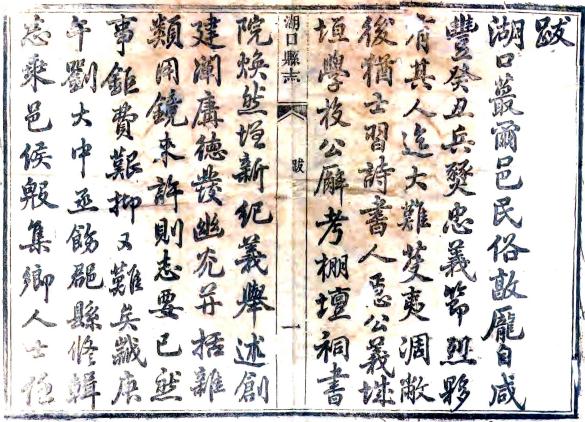 跋
湖口蕞爾邑民俗敦龐自咸
豐癸丑兵燹忠義節烈夥
有其人迄大難芟夷凋敝
後猶士習詩書人急公義城
垣學校公廨考棚壇祠書
湖口縣志
跋
一
院煥然增新紀義舉述創
建闡庸德發幽光并括雜
類用鏡來許則志要已然
事鉅費艱抑又難矣歲庚
午劉大中丞飭郡縣修輯
志乘邑侯殷集鄉人士